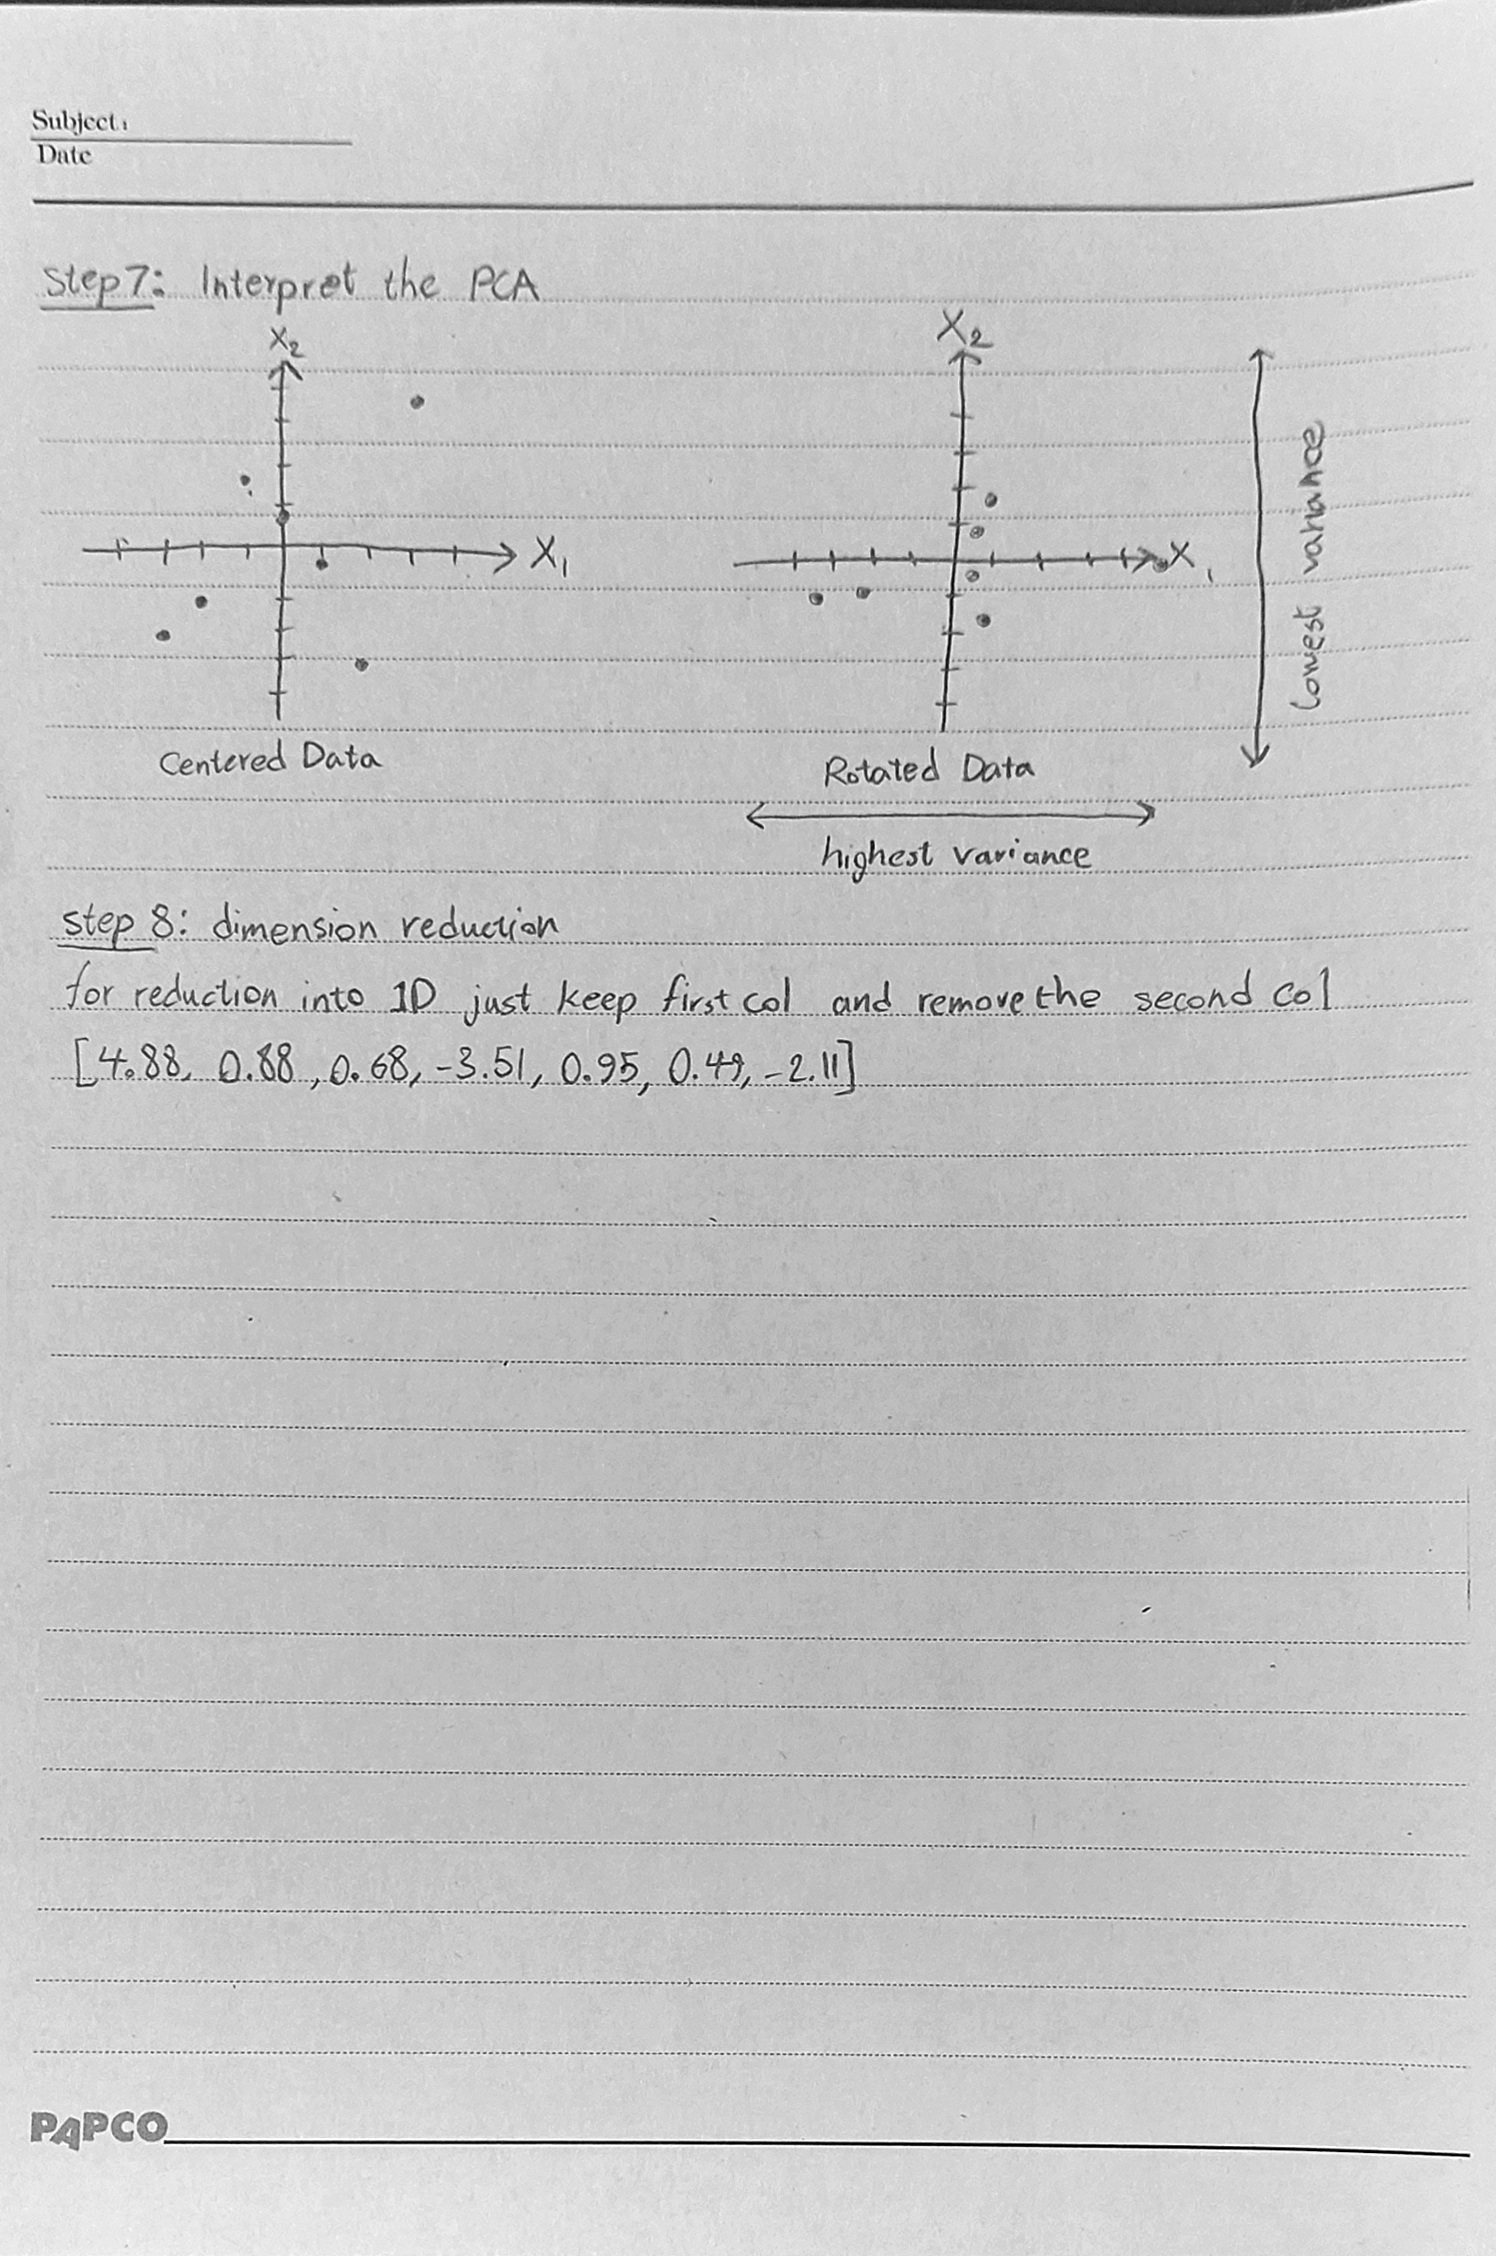 Subject:
Date
Step7: Interpret the PCA
X2
X1
Centered Data
X2
X1
Rotated Data
lowest variance
highest variance
step 8: dimension reduction
for reduction into 1D just keep first col and remove the second col
[4.88, 0.88, 0.68, -3.51, 0.95, 0.49, -2.11]
PAPCO